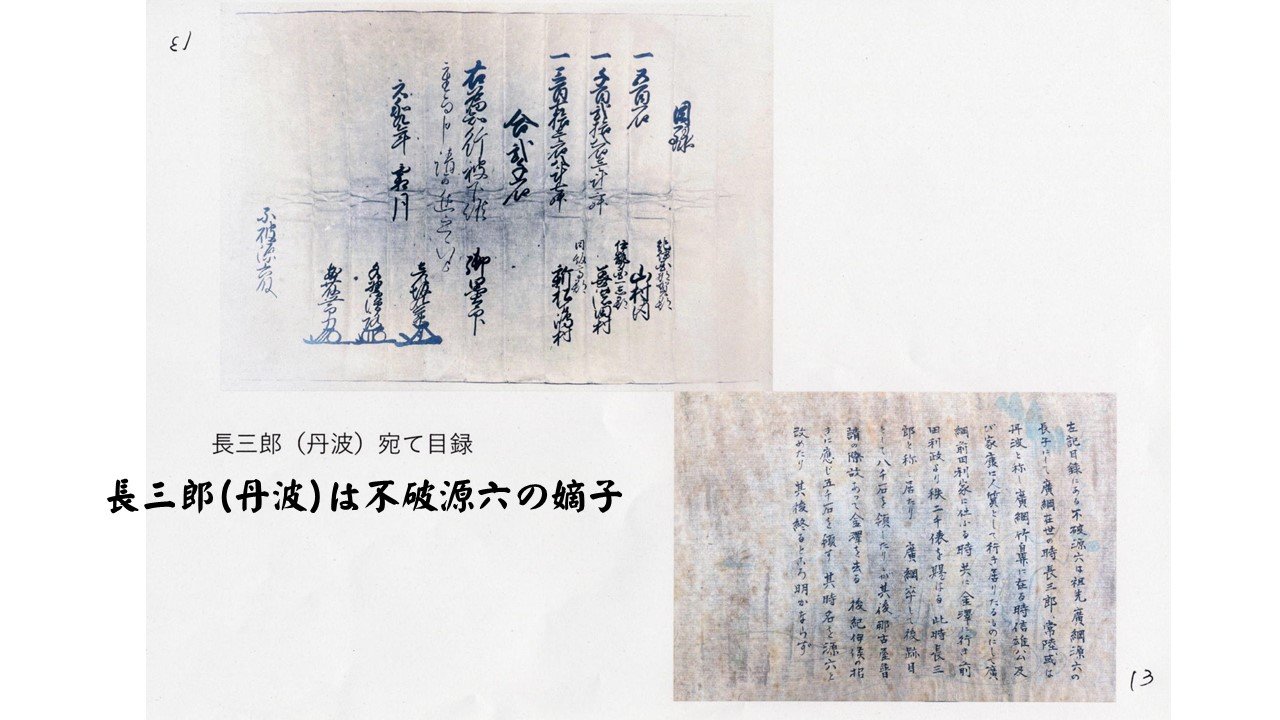 13
目録
一 五百石
山村内
一 千百弐拾六石三斗二升
一 三百五拾
新松ヶ嶋村
合弐千石
右為知行被下候 御墨印
元和九年 霜月
不破源六殿
長三郎（丹波）宛て目録
長三郎(丹波)は不破源六の嫡子
左記目録にある不破源六は祖先廣綱源六の
長子にして廣綱在世の時長三郎、常陸或は
丹波と称し廣綱竹鼻に在る時信雄公及
び家康に人質として行き居りたるものにして廣
綱前田利家に仕ふる時共に金澤に行き前
田利政より秩二千俵を賜はる 此時長三
郎と称し居たり 廣綱卒して後跡目
として八千石を領したりしが其後那古屋普
請の際故あって金澤を去る 後紀伊侯の招
きに應じ五千石を領す 其時名を源六と
改めたり 其後終るところ明かならず
13